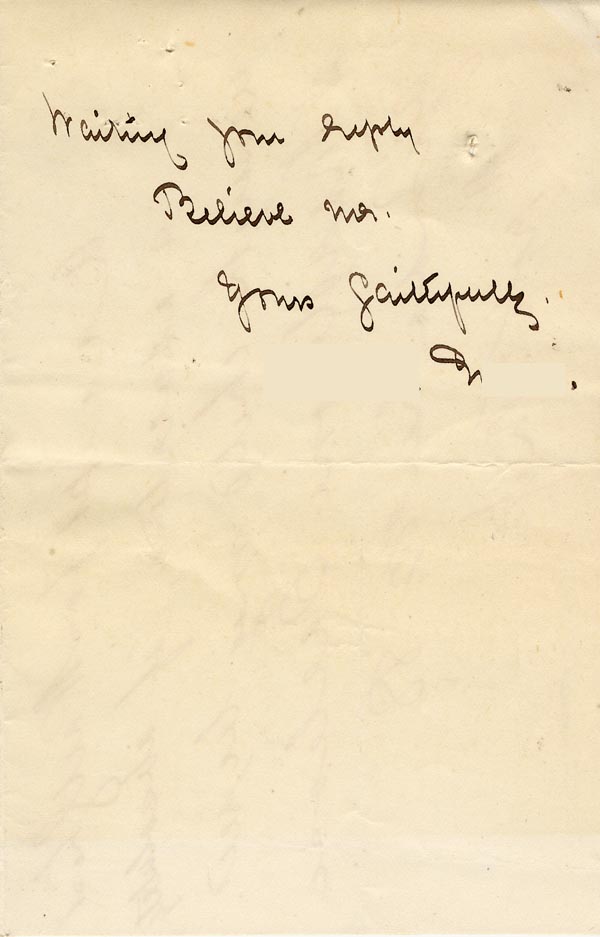 Waiting your reply
Believe me.
Yours faithfully.